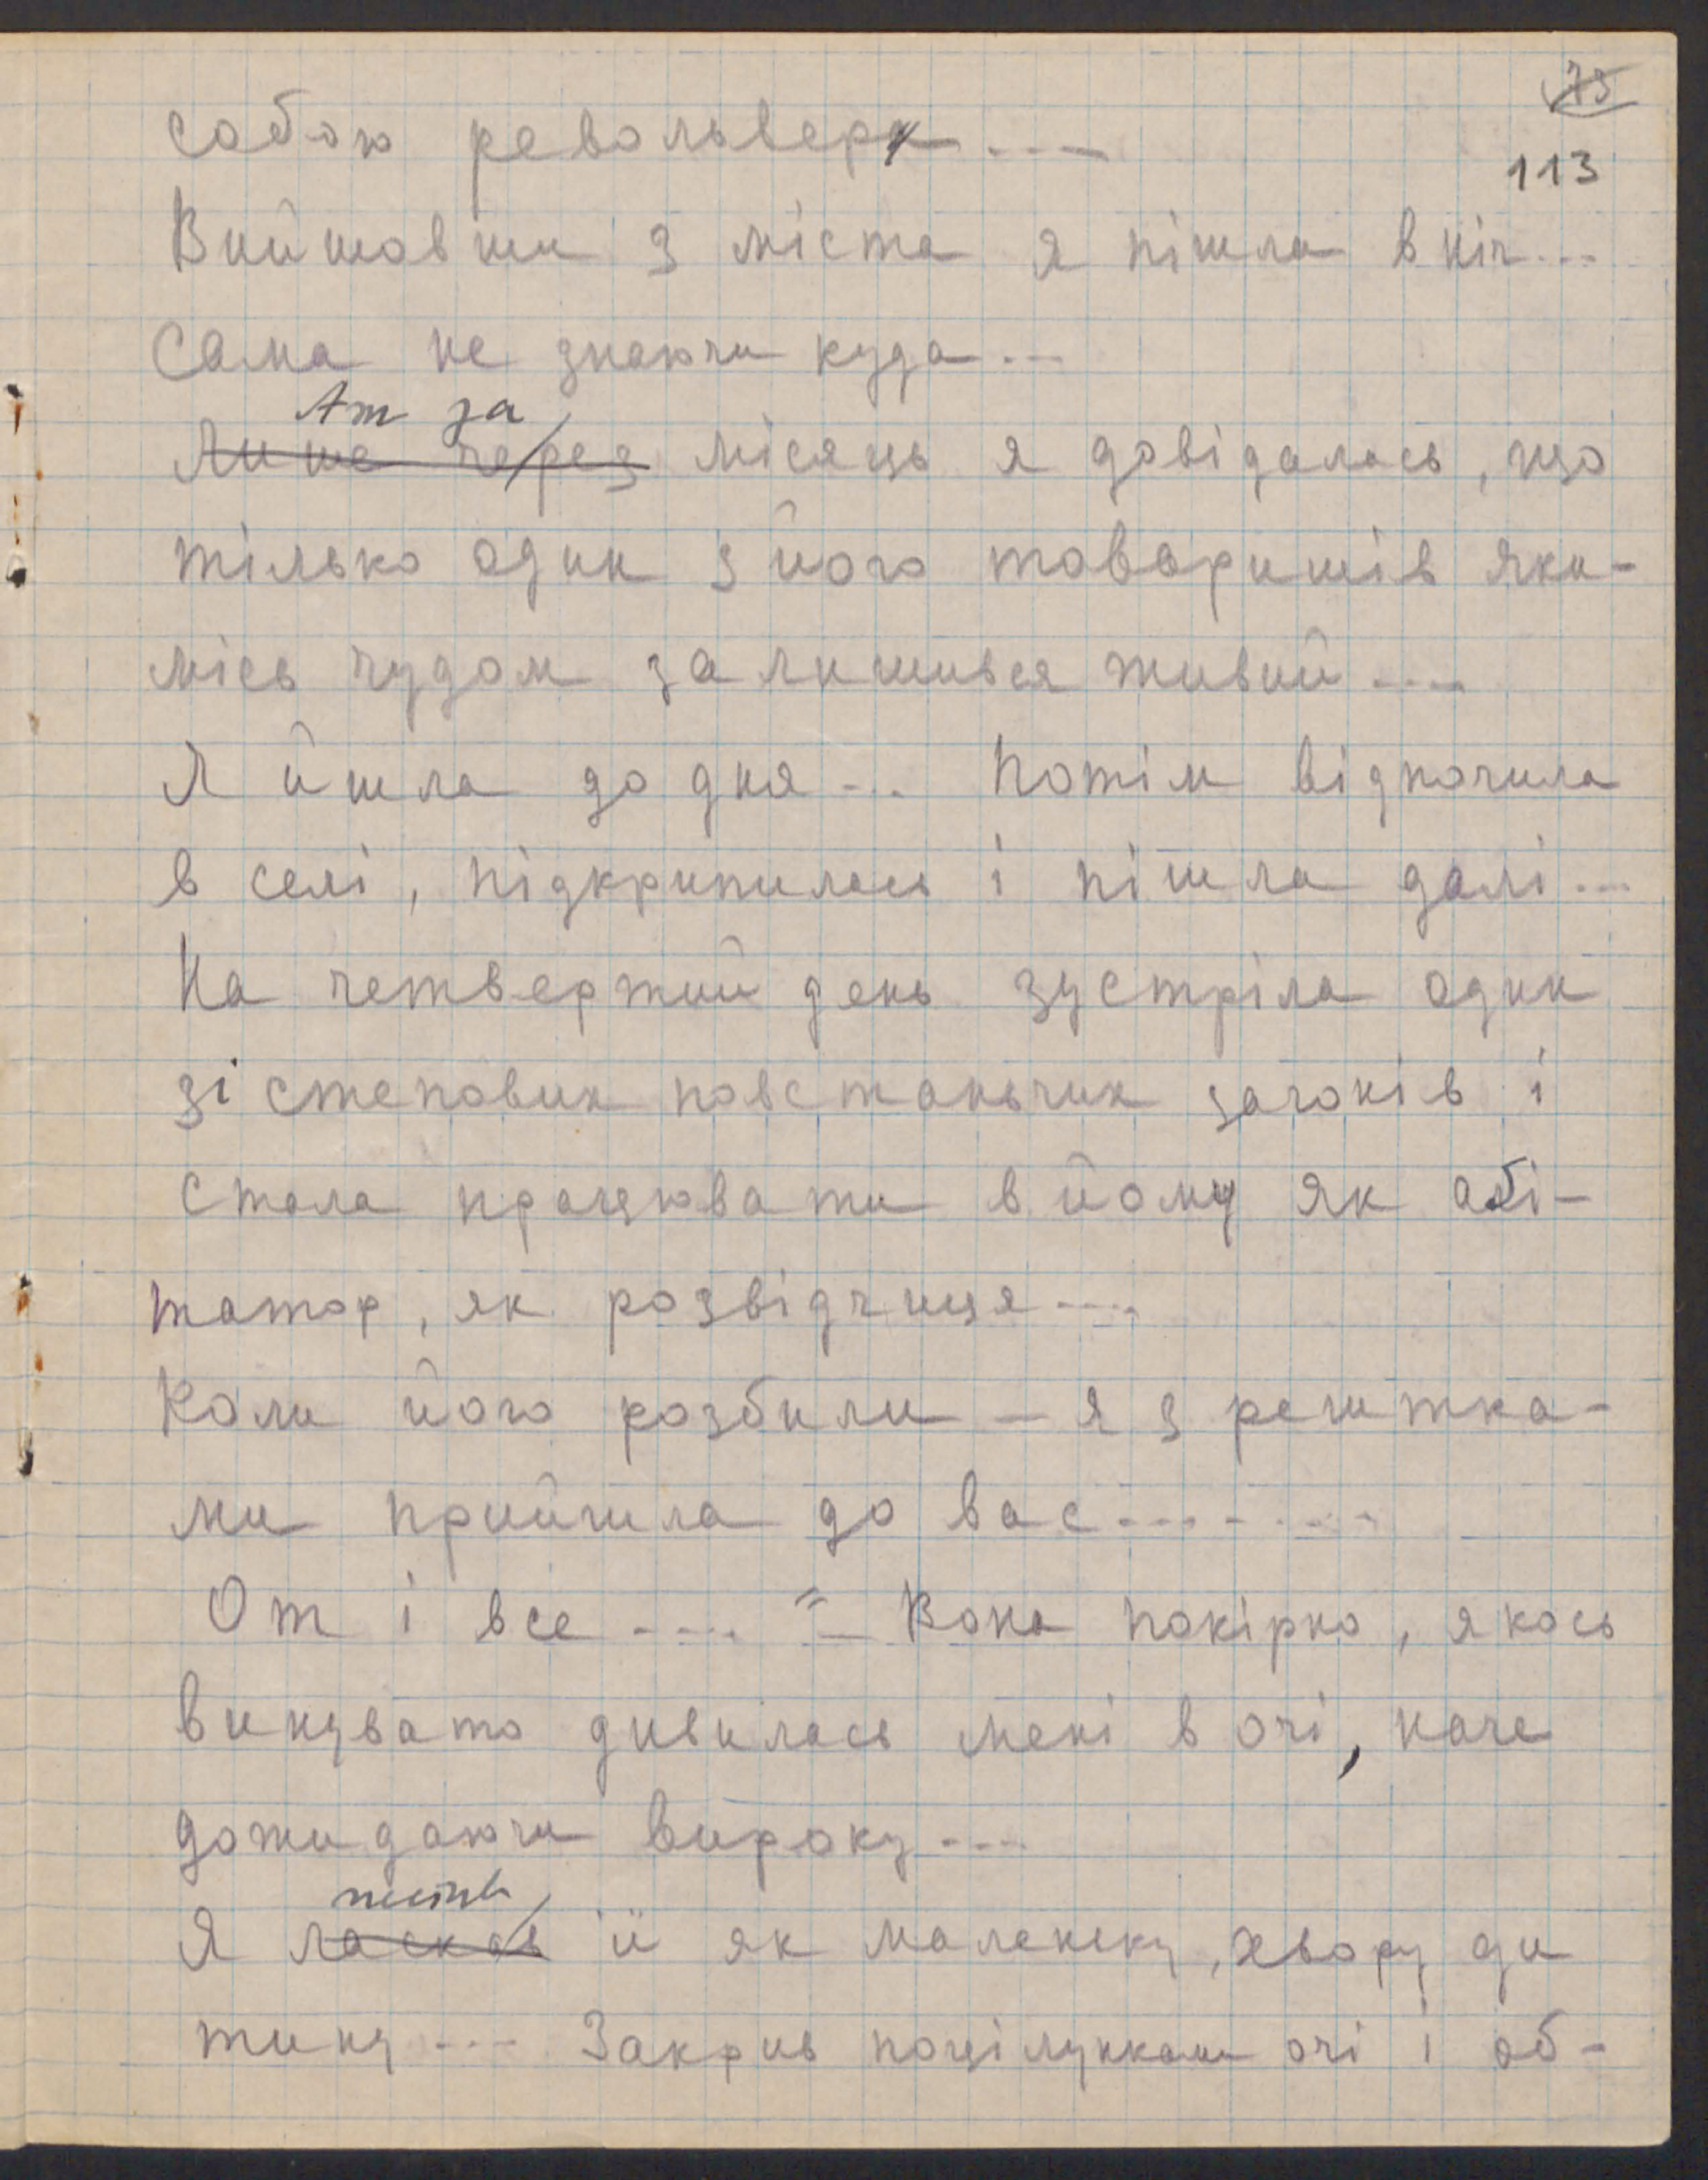 75
113
собою револьвер...
Вийшовши з міста я пішла в ніч...
Сама не знаючи куда...
Аж за
Лише через місяць я довідалась, що
тілько один з його товаришів яки-
місь чудом залишився живий....
Я йшла до дня... Потім відпочила
в селі, підкрипилась і пішла далі...
На четвертий день зустріла один
зі степових повстаньчих загонів і
стала працювати в йому як агі-
татор, як розвідчиця....
Коли його розбили — я з рештка-
ми прийшла до вас.......
От і все.... " — Вона покірно, якось
винувато дивилась мені в очі, наче
дожидаючи вироку...
пестив
Я ласкав її як маленьку, хвору ди
тину... Закрив поцілунками очі і об-